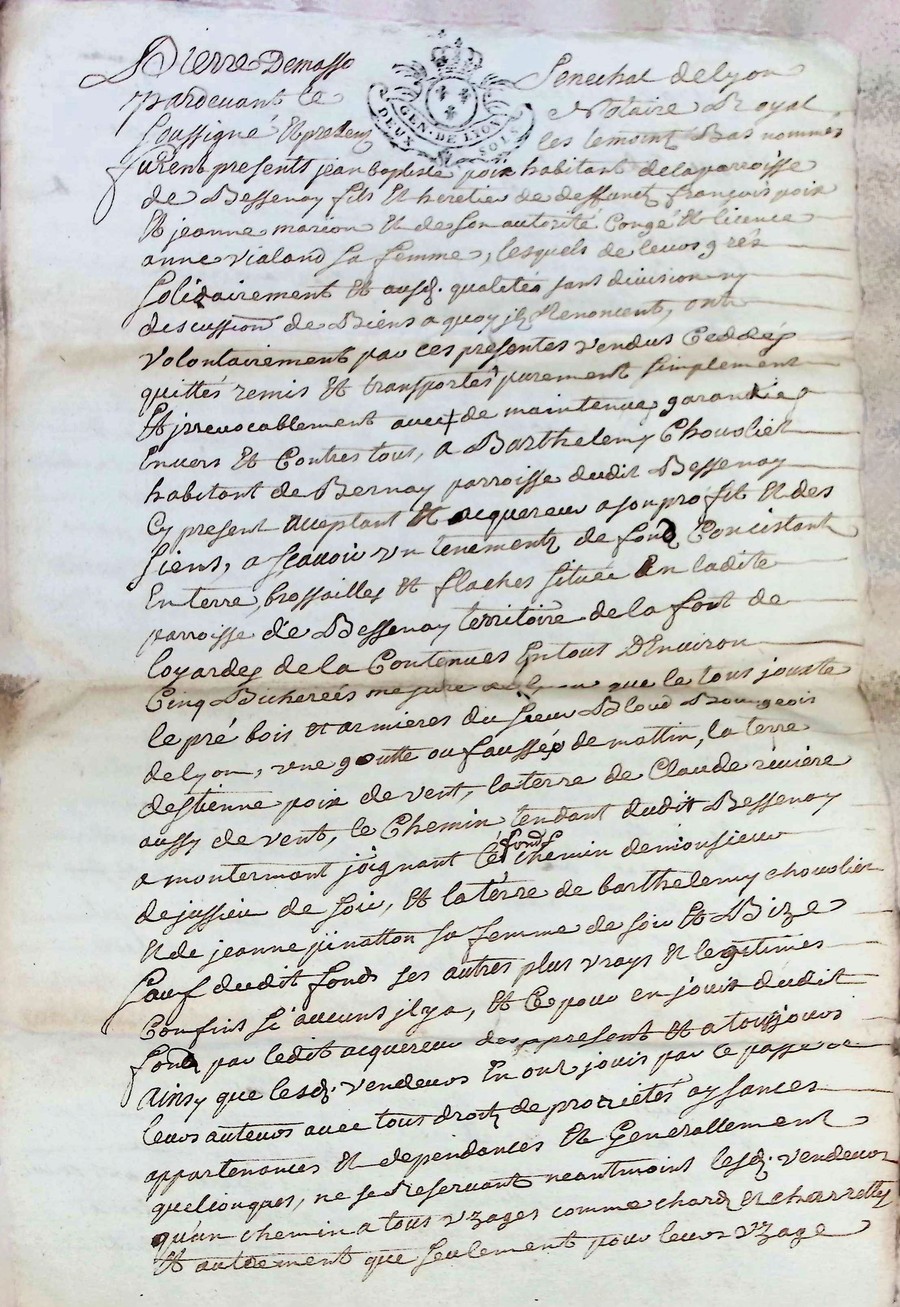 Pierre Demasso Senechal de Lyon
pardevant le Notaire Royal
GEN. DE LYON
DEUX SOLS
soussigné Et presens les temoins Bas nommés
furent presents jean Baptiste poix habitant dela parroisse
de Bessenay fils Et heretier de deffunct françois poix
Et jeanne marion Et de son autorité Congé Et licence
anne vialand sa femme, lesquels de leurs grés
solidairement Et ausd. qualités sans division ny
discussion de Biens a quoy ils Renoncent, ont
volontairement par ces presentes vendus Ceddés
quittés remis Et transportés purement simplement
Et jrrevocablement avec de maintenue garanties
Envers Et Contres tous, a Barthelemy Chovolier
habitant de Bernay parroisse dudit Bessenay
Cy present acceptant Et acquereur a son profit Et des
siens, a scavoir un tenement de fond Concistant
En terre, brossailles Et flaches située En ladite
parroisse de Bessenay territoire de la font de
loyardes de la Contenues En tous D'Environ
Cinq Bicherées mesure de lyon que le tous jouxte
le pré bois et armieres du sieur Bloud Bourgeois
de lyon, une goutte ou faussé de mattin, la terre
d'Estienne poix de vent, la terre de Claude riviere
aussy de vent, le Chemin tendant dudit Bessenay
fonds
a montermant joignant le chemin de monsieur
de jussieu de soir, Et la terre de barthelemy chovolier
Et de jeanne jinatton sa femme de soir Et Bize
sauf dudit fonds ses autres plus vrays Et legitimes
Confins si aucuns jl y a, Et Ce pour en jouir dudit
fond par ledit acquereur des appresent Et a toujours
Ainsy que lesd. vendeurs En ont jouis par le passé ce
leurs auteurs avec tous droits de proprietés aysances
appartenances Et dependances Et Generallement
quelconques, ne se Reservant neantmoins lesd. vendeurs
qu'un chemin a tous uzages comme chard Et charrettes
Et autrement que seulement pour leurs uzage